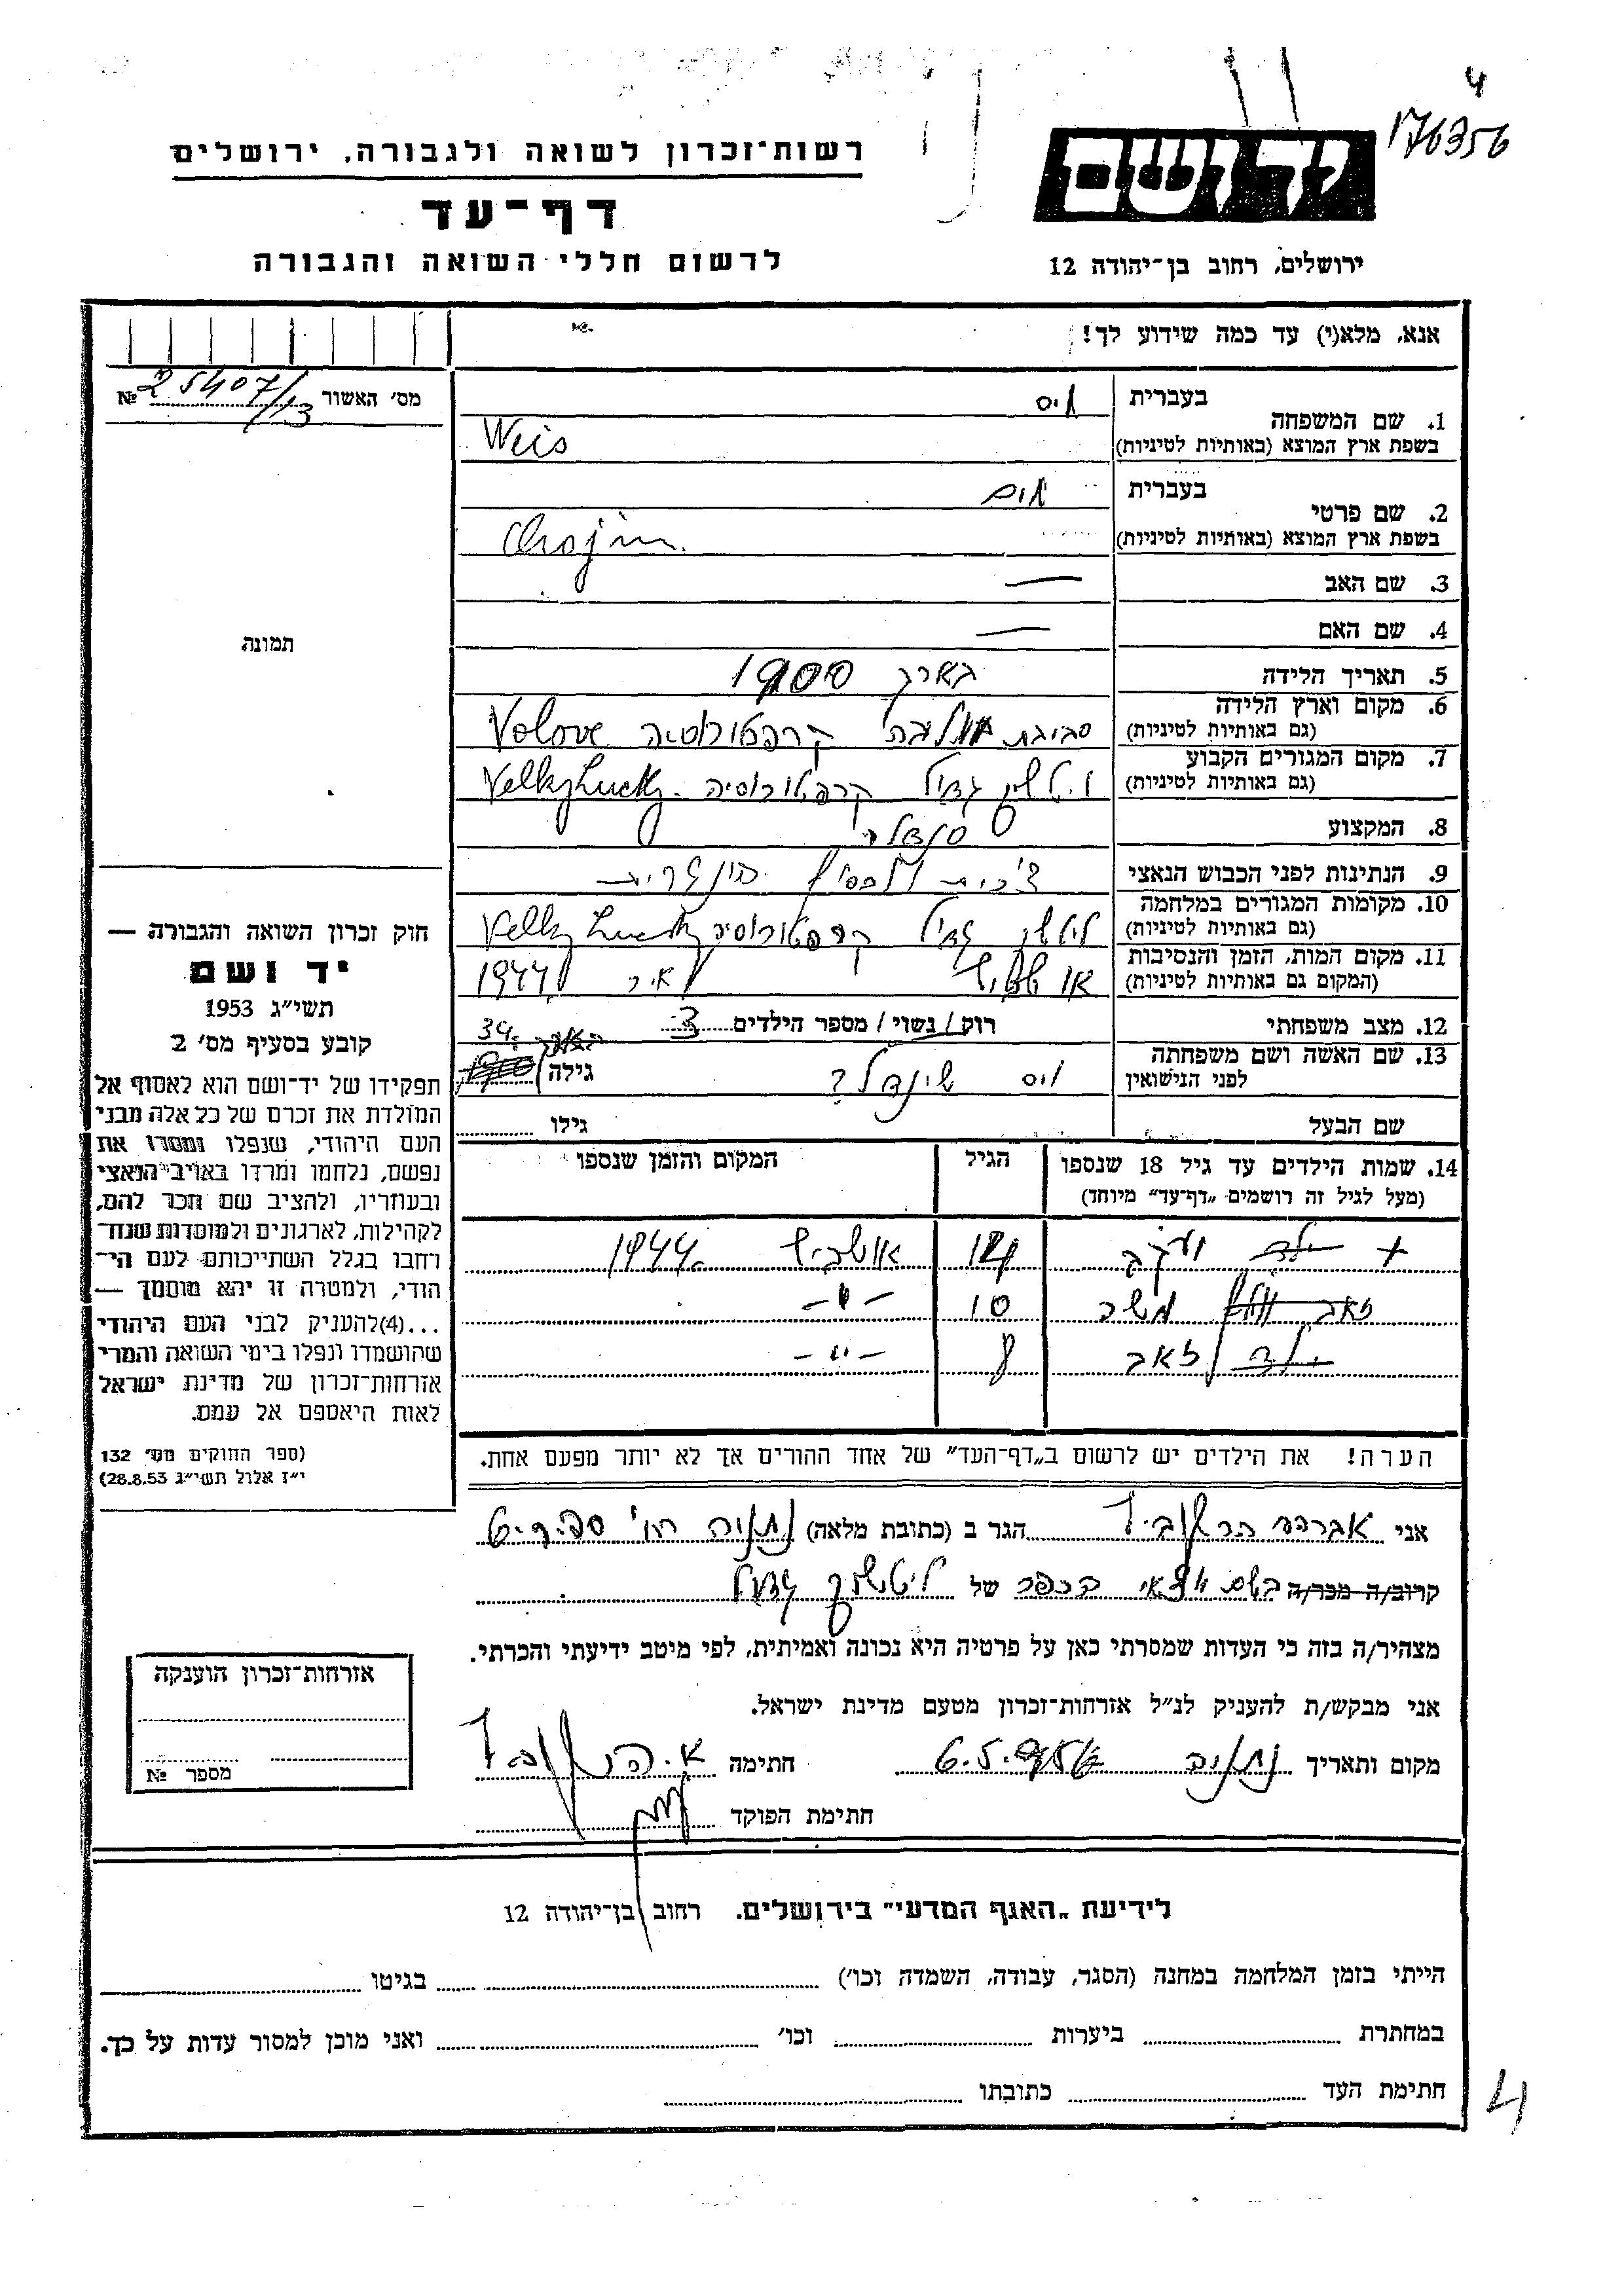 4
176356
רשות־זכרון לשואה ולגבורה, ירושלים
יד ושם
דף־עד
לרשום חללי השואה והגבורה
ירושלים, רחוב בן־יהודה 12
אנא, מלא(י) עד כמה שידוע לך!
מס׳ האשור 25407/13 №
1. שם המשפחה
בעברית ויס
בשפת ארץ המוצא (באותיות לטיניות) Weis
2. שם פרטי
בעברית חיים
בשפת ארץ המוצא (באותיות לטיניות) Chajim
3. שם האב —
4. שם האם —
5. תאריך הלידה בערך 1900
6. מקום וארץ הלידה (גם באותיות לטיניות) סביבת קרפטורוסיה Volove
7. מקום המגורים הקבוע (גם באותיות לטיניות) קרפטורוסיה Velky Lucky
8. המקצוע סנדלר
9. הנתינות לפני הכבוש הנאצי
10. מקומות המגורים במלחמה (גם באותיות לטיניות) קרפטורוסיה Velky Lucky
11. מקום המות, הזמן והנסיבות (המקום גם באותיות לטיניות) אושוויץ 1944
12. מצב משפחתי רווק / נשוי / מספר הילדים 3
13. שם האשה ושם משפחתה לפני הנישואין ויס שינדלר גילה 34
שם הבעל גילו
14. שמות הילדים עד גיל 18 שנספו (מעל לגיל זה רושמים „דף־עד״ מיוחד)
הגיל
המקום והזמן שנספו
+ ילד יעקב 14 אושביץ 1944
זאב משה 10 -״-
ילד זאב 8 -״-
הערה! את הילדים יש לרשום ב„דף־העד״ של אחד ההורים אך לא יותר מפעם אחת.
תמונה
חוק זכרון השואה והגבורה —
יד ושם
תשי״ג 1953
קובע בסעיף מס׳ 2
תפקידו של יד־ושם הוא לאסוף אל
המולדת את זכרם של כל אלה מבני
העם היהודי, שנפלו ומסרו את
נפשם, נלחמו ומרדו באויב הנאצי
ובעוזריו, ולהציב שם וזכר להם,
לקהילות, לארגונים ולמוסדות שנח־
רחבו בגלל השתייכותם לעם הי־
הודי, ולמטרה זו יהא מוסמך —
...(4) להעניק לבני העם היהודי
שהושמדו ונפלו בימי השואה והמרי
אזרחות־זכרון של מדינת ישראל
לאות היאספם אל עמם.
(ספר החוקים מס׳ 132
י״ז אלול תשי״ג 28.8.53)
אני אברהם הרשקוביץ הגר ב (כתובת מלאה) נתניה רח׳
קרוב/ה מכר/ה בכפר של
מצהיר/ה בזה כי העדות שמסרתי כאן על פרטיה היא נכונה ואמיתית, לפי מיטב ידיעתי והכרתי.
אני מבקש/ת להעניק לנ״ל אזרחות־זכרון מטעם מדינת ישראל.
מקום ותאריך נתניה 6.5. חתימה
חתימת הפוקד
אזרחות־זכרון הוענקה
מספר №
לידיעת „האגף המדעי״ בירושלים. רחוב בן־יהודה 12
הייתי בזמן המלחמה במחנה (הסגר, עבודה, השמדה וכו׳) בגיטו
במחתרת ביערות וכו׳ ואני מוכן למסור עדות על כך.
חתימת העד כתובתו
4